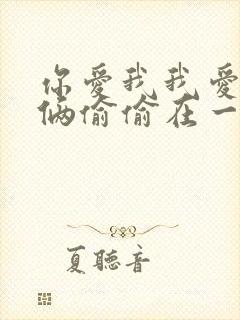 你爱我我爱
俩偷偷在一
夏聽音